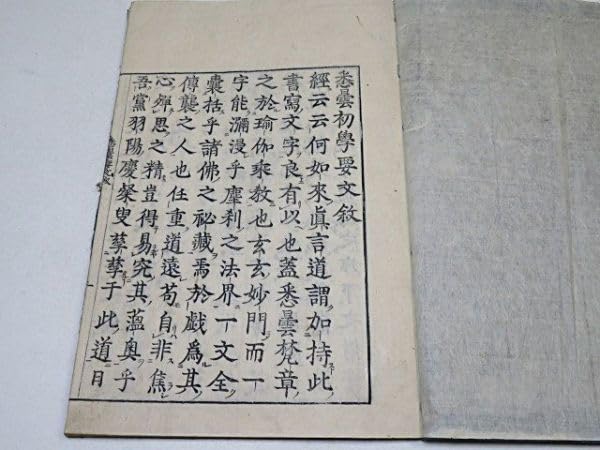 悉曇初學要文敘
經云云何如來眞言道謂加持此
書寫文字良有以也蓋悉曇梵章
之於瑜伽乘教也玄玄妙門而一
字能瀰漫乎塵刹之法界一文全
囊括乎諸佛之秘藏焉於戲爲其
傳襲之人也任重道遠苟自非焦
心殫思之精豈得易究其蘊奥乎
吾黨羽陽慶榮叟孳孳于此道日